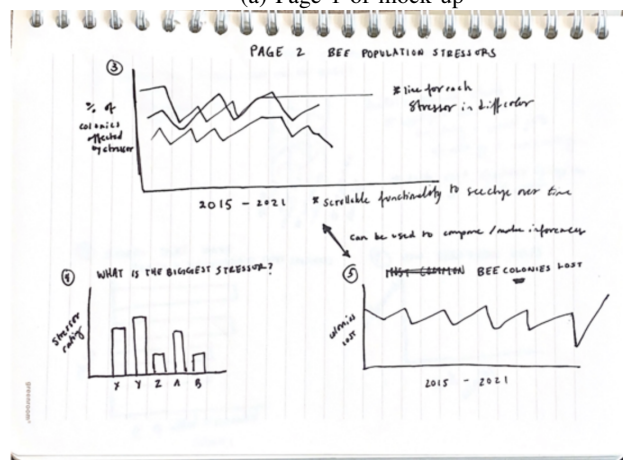 (a) Page 1 of mock-up
PAGE 2 BEE POPULATION STRESSORS
3
% of
colonies
affected
by stressor
* line for each
stressor in diff color
2015 - 2021
* scrollable functionality to see chge over time
can be used to compare / make inferences
4
WHAT IS THE BIGGEST STRESSOR?
stressor
rating
X Y Z A B
5
MOST COMMON BEE COLONIES LOST
colonies
lost
2015 - 2021
greenroom